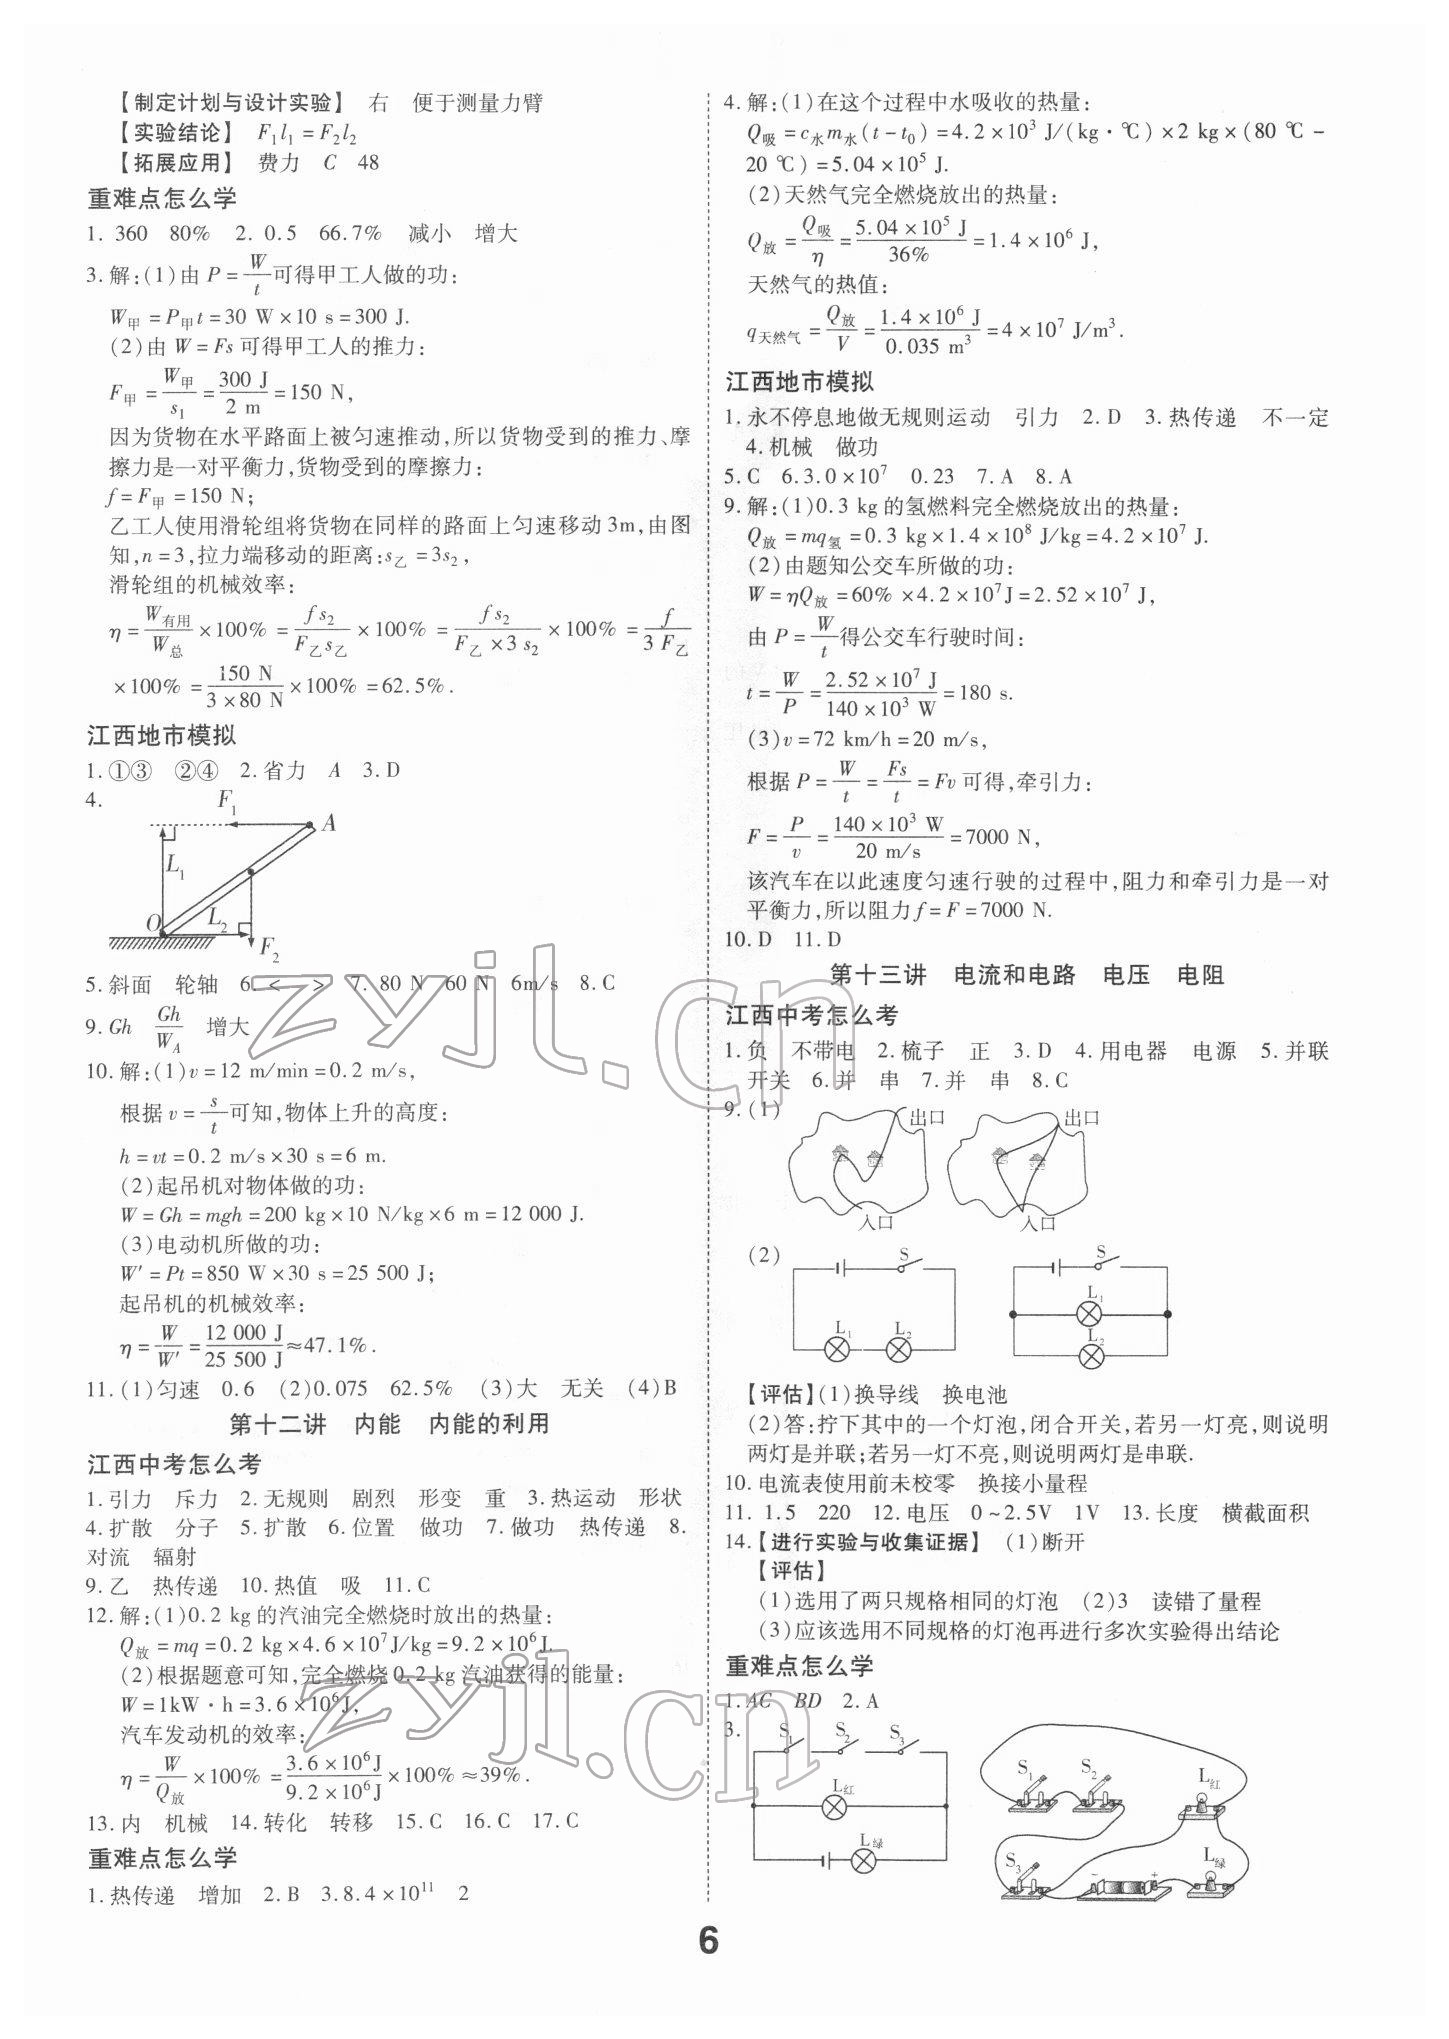 【制定计划与设计实验】 右 便于测量力臂
【实验结论】 F₁l₁=F₂l₂
【拓展应用】 费力 C 48
重难点怎么学
1. 360 80% 2. 0.5 66.7% 减小 增大
3. 解:(1)由 P=W/t 可得甲工人做的功:
W甲=P甲t=30 W×10 s=300 J.
(2)由 W=Fs 可得甲工人的推力:
F甲=W甲/s₁=300 J/2 m=150 N,
因为货物在水平路面上被匀速推动,所以货物受到的推力、摩
擦力是一对平衡力,货物受到的摩擦力:
f=F甲=150 N;
乙工人使用滑轮组将货物在同样的路面上匀速移动3m,由图
知,n=3,拉力端移动的距离:s乙=3s₂,
滑轮组的机械效率:
η=W有用/W总×100%=fs₂/F乙s乙×100%=fs₂/F乙×3s₂×100%=f/3F乙
×100%=150 N/3×80 N×100%=62.5%.
江西地市模拟
1. ①③ ②④ 2. 省力 A 3. D
4.
F₁
A
L₁
O
L₂
F₂
5. 斜面 轮轴 6. < > 7. 80 N 60 N 6m/s 8. C
9. Gh Gh/W_A 增大
10. 解:(1)v=12 m/min=0.2 m/s,
根据 v=s/t 可知,物体上升的高度:
h=vt=0.2 m/s×30 s=6 m.
(2)起吊机对物体做的功:
W=Gh=mgh=200 kg×10 N/kg×6 m=12 000 J.
(3)电动机所做的功:
W′=Pt=850 W×30 s=25 500 J;
起吊机的机械效率:
η=W/W′=12 000 J/25 500 J≈47.1%.
11. (1)匀速 0.6 (2)0.075 62.5% (3)大 无关 (4)B
第十二讲 内能 内能的利用
江西中考怎么考
1. 引力 斥力 2. 无规则 剧烈 形变 重 3. 热运动 形状
4. 扩散 分子 5. 扩散 6. 位置 做功 7. 做功 热传递 8.
对流 辐射
9. 乙 热传递 10. 热值 吸 11. C
12. 解:(1)0.2 kg的汽油完全燃烧时放出的热量:
Q放=mq=0.2 kg×4.6×10⁷J/kg=9.2×10⁶J.
(2)根据题意可知,完全燃烧0.2 kg汽油获得的能量:
W=1kW·h=3.6×10⁶J,
汽车发动机的效率:
η=W/Q放×100%=3.6×10⁶J/9.2×10⁶J×100%≈39%.
13. 内 机械 14. 转化 转移 15. C 16. C 17. C
重难点怎么学
1. 热传递 增加 2. B 3. 8.4×10¹¹ 2
4. 解:(1)在这个过程中水吸收的热量:
Q吸=c水m水(t-t₀)=4.2×10³ J/(kg·℃)×2 kg×(80 ℃-
20 ℃)=5.04×10⁵ J.
(2)天然气完全燃烧放出的热量:
Q放=Q吸/η=5.04×10⁵ J/36%=1.4×10⁶ J,
天然气的热值:
q天然气=Q放/V=1.4×10⁶ J/0.035 m³=4×10⁷ J/m³.
江西地市模拟
1. 永不停息地做无规则运动 引力 2. D 3. 热传递 不一定
4. 机械 做功
5. C 6. 3.0×10⁷ 0.23 7. A 8. A
9. 解:(1)0.3 kg的氢燃料完全燃烧放出的热量:
Q放=mq氢=0.3 kg×1.4×10⁸ J/kg=4.2×10⁷ J.
(2)由题知公交车所做的功:
W=ηQ放=60%×4.2×10⁷J=2.52×10⁷ J,
由 P=W/t 得公交车行驶时间:
t=W/P=2.52×10⁷ J/140×10³ W=180 s.
(3)v=72 km/h=20 m/s,
根据 P=W/t=Fs/t=Fv可得,牵引力:
F=P/v=140×10³ W/20 m/s=7000 N,
该汽车在以此速度匀速行驶的过程中,阻力和牵引力是一对
平衡力,所以阻力f=F=7000 N.
10. D 11. D
第十三讲 电流和电路 电压 电阻
江西中考怎么考
1. 负 不带电 2. 梳子 正 3. D 4. 用电器 电源 5. 并联
开关 6. 并 串 7. 并 串 8. C
9. (1)
出口
入口
出口
入口
(2)
S
L₁
L₂
S
L₁
L₂
【评估】(1)换导线 换电池
(2)答:拧下其中的一个灯泡,闭合开关,若另一灯亮,则说明
两灯是并联;若另一灯不亮,则说明两灯是串联.
10. 电流表使用前未校零 换接小量程
11. 1.5 220 12. 电压 0~2.5V 1V 13. 长度 横截面积
14. 【进行实验与收集证据】 (1)断开
【评估】
(1)选用了两只规格相同的灯泡 (2)3 读错了量程
(3)应该选用不同规格的灯泡再进行多次实验得出结论
重难点怎么学
1. AC BD 2. A
3.
S₁
S₂
S₃
L红
L绿
S₁
S₂
L红
S₃
- +
L绿
6
zyjl.cn
zyjl.cn